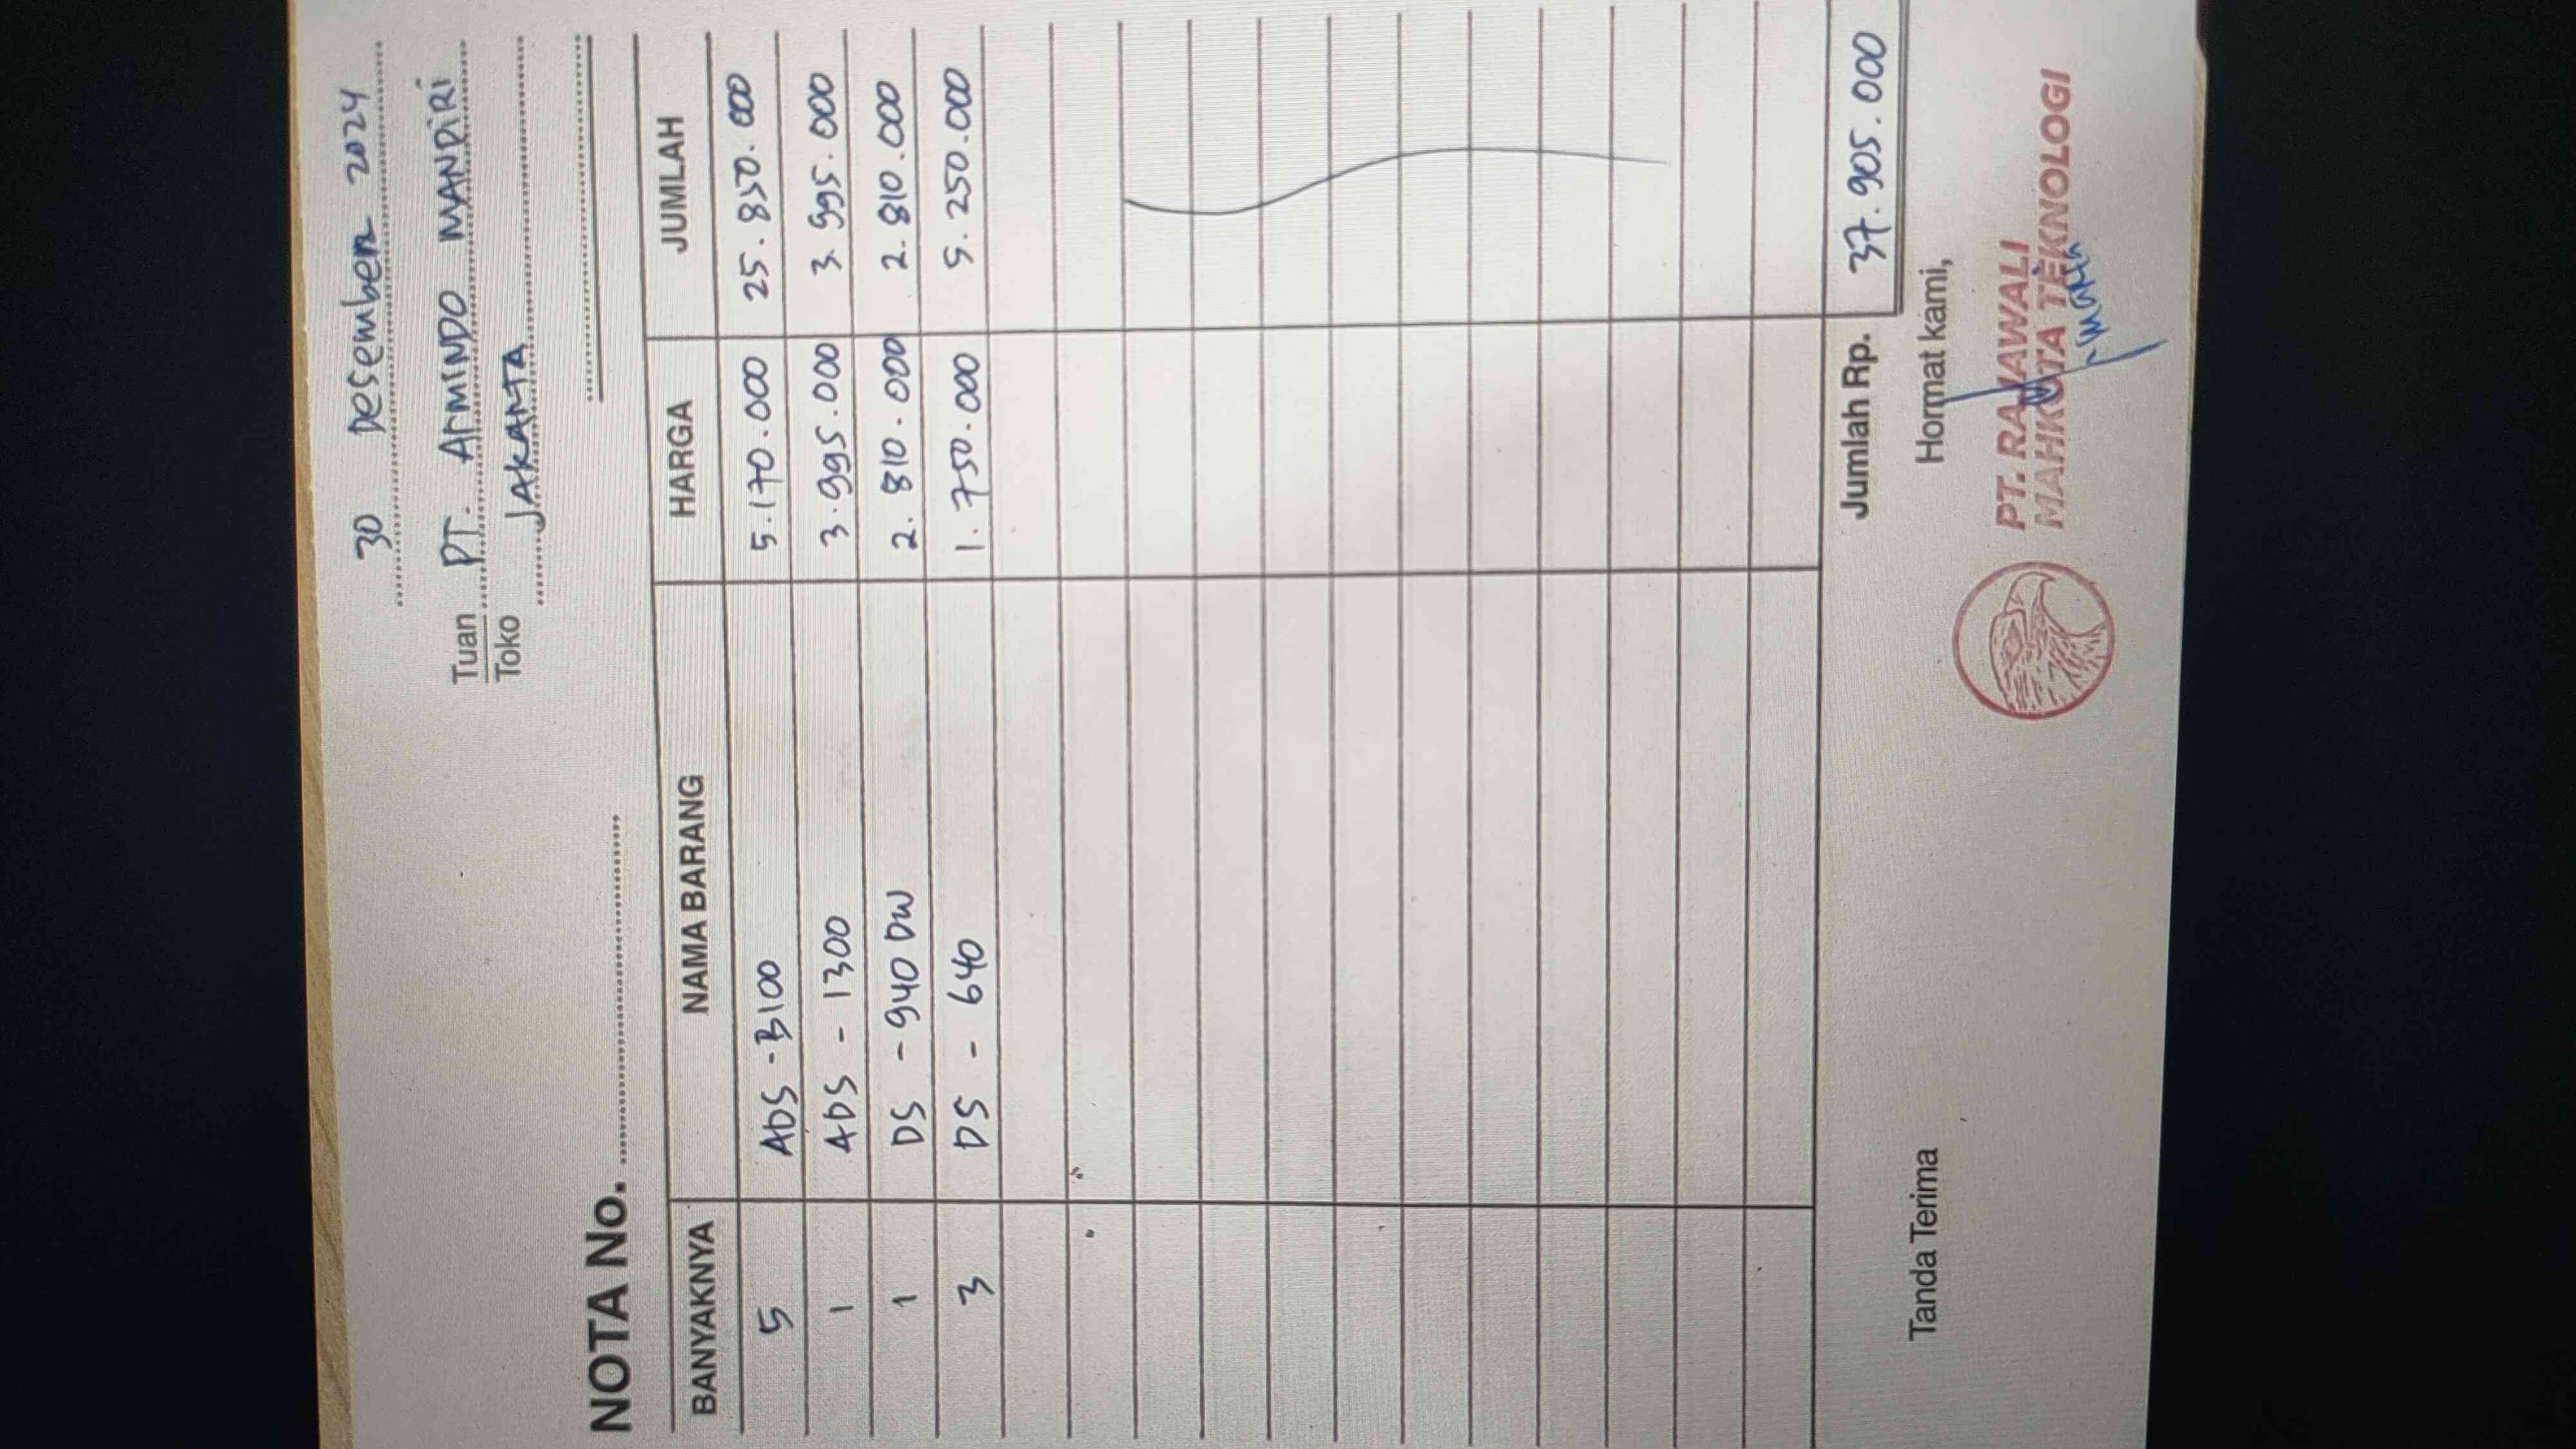 30 Desember 2024
Tuan PT. ArmINDO MANDIRI
Toko JAKARTA
NOTA No.
BANYAKNYA NAMA BARANG HARGA JUMLAH
5 ADS - B100 5.170.000 25.850.000
1 ADS - 1300 3.995.000 3.995.000
1 DS - 940 DW 2.810.000 2.810.000
3 DS - 640 1.750.000 5.250.000
Jumlah Rp. 37.905.000
Tanda Terima Hormat kami,
PT. RAJAWALI
MAHKOTA TEKNOLOGI